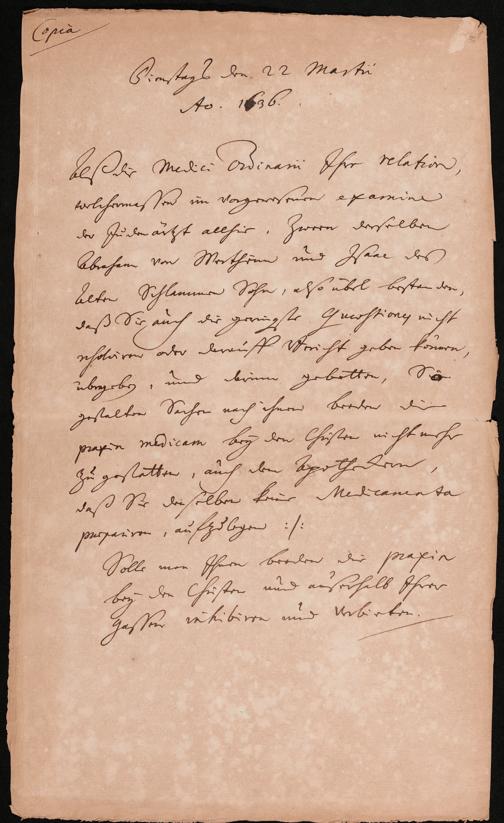 Copia
Dienstags den 22 Martii
Ao. 1636.
Als die Medici Ordinarii Ihre relation,
welchermassen im vorgewesenen examine
der Judenärtzt allhie, Zween derselben
Abraham von Wertheim und Isaac des
Alten Schlammen Sohn, also übel bestanden,
daß Sie auch die geringste Quaestiones nicht
resolviren oder darauff Bericht geben können,
übergeben, und darinn gebetten, 
gestalten Sachen nach ihnen beeden die
praxin medicam bey den Christen nicht mehr
zu gestatten, auch den Apotheckern,
daß Sie denselben keine Medicamenta
praepariren, aufzulegen :/:
Solle man Ihnen beeden die praxin
bey den Christen und ausserhalb Ihrer
gassen inhibiren und verbieten.